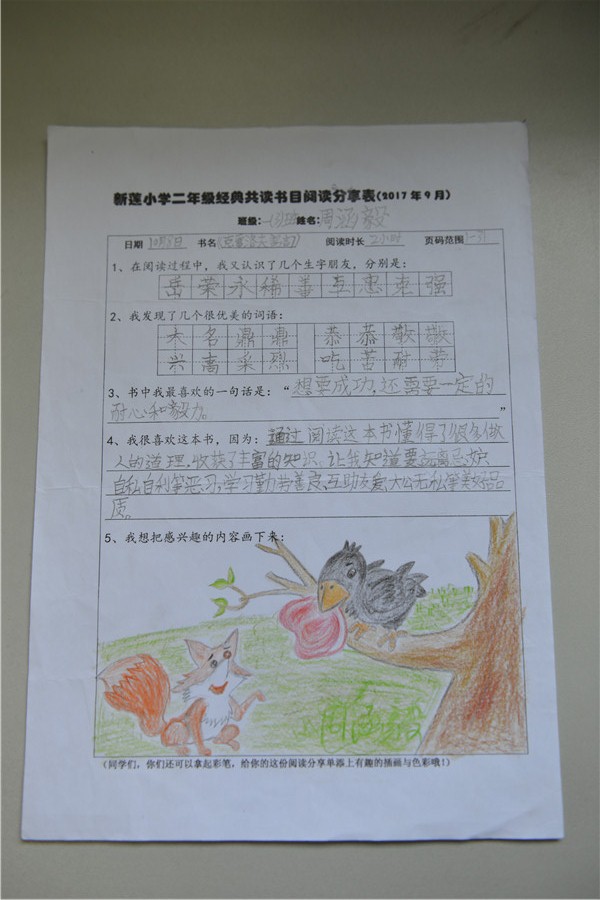 新莲小学二年级经典共读书目阅读分享表(2017年9月)
班级: 姓名:周涵毅
日期 10月5日 书名《克雷洛夫寓言》 阅读时长 2小时 页码范围1-31
1、在阅读过程中,我又认识了几个生字朋友,分别是:
岳荣永稀善互惠克强
2、我发现了几个很优美的词语:
大名鼎鼎 恭恭敬敬
兴高采烈 吃苦耐劳
3、书中我最喜欢的一句话是:“想要成功,还需要一定的
耐心和毅力。”
4、我很喜欢这本书,因为:通过阅读这本书懂得了很多做
人的道理,收获了丰富的知识。让我知道要远离忌妒、
自私自利等恶习,学习勤劳善良、互助友爱、大公无私等美好品
质。
5、我想把感兴趣的内容画下来:
周涵毅
(同学们,你们还可以拿起彩笔,给你的这份阅读分享单添上有趣的插画与色彩哦!)